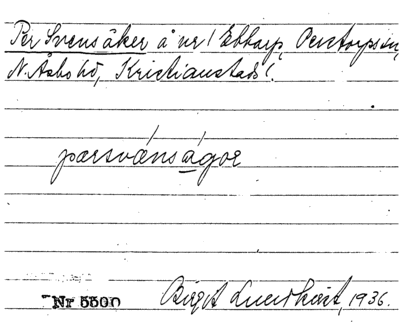 Per Svens åker å nr 1 Ebbarp, Perstorps sn,
N. Åsbo hd, Kristianstads l.
pærsvænságor
Nr 5500 Birgit Lundkvist, 1936.